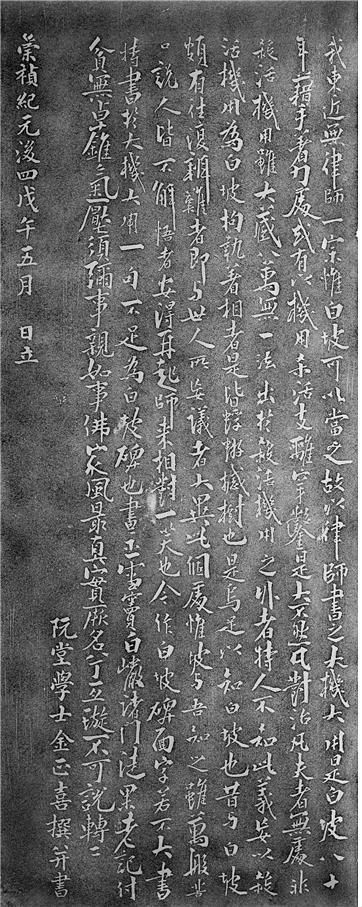 我東近無律師一宗惟白坡可以當之故以律師書之大機大用是白坡八十
年藉手着力處或有以機用殺活支離穿鑿是大不然凡對治凡夫者無處非
殺活機用雖大藏八萬無一法出於殺活機用之外者特人不知此義妄以殺
活機用為白坡拘執着相者是皆蜉蝣撼樹也是烏足以知白坡也昔與白坡
頗有往復辨難者即與世人所妄議者大異此個處惟坡與吾知之雖萬般苦
口說人皆不解悟者安得再起師來相對一笑也今作白坡碑面字若不大書
特書於大機大用一句不足為白坡碑也書示雪竇白巖諸門徒果老記付
貧無卓錐氣壓須彌事親如事佛家風最真實厥名兮亙璇不可說轉轉
阮堂學士金正喜撰并書
崇禎紀元後四戊午五月 日立